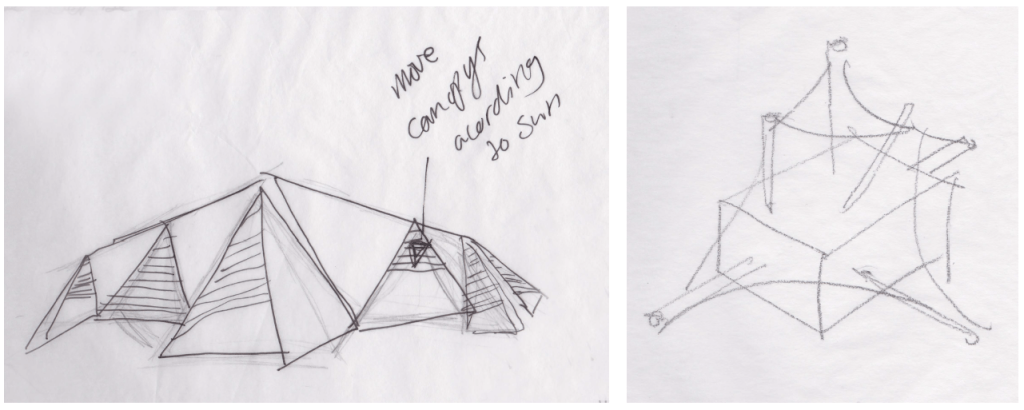 move
canopys
acording
to sun